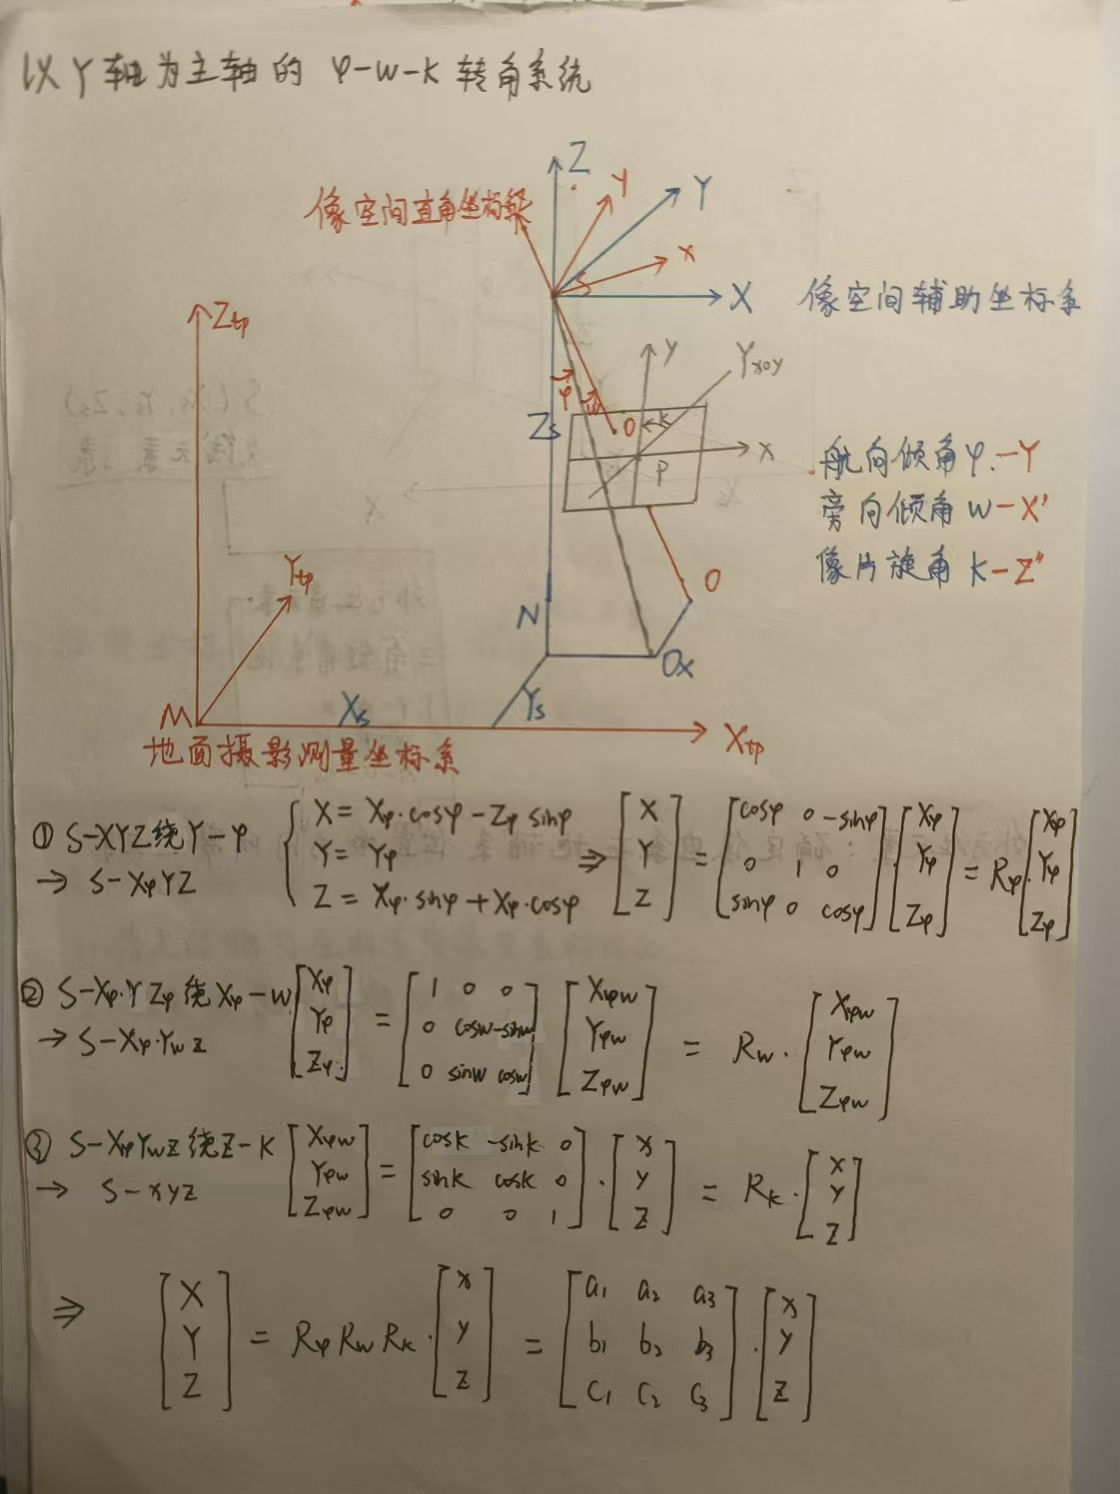 以Y轴为主轴的 φ-w-k 转角系统
Z
Y
Y
像空间直角坐标系
S
x
X
像空间辅助坐标系
Ztp
y
Yxoy
φ
w
Zs
o
k
x
P
航向倾角φ.-Y
旁向倾角w-X'
像片旋角k-Z"
Ytp
N
O
Ox
M
Xs
Ys
Xtp
地面摄影测量坐标系
① S-XYZ绕Y-φ
→ S-XφYZ
{ X = Xφ·cosφ - Zφ sinφ
Y = Yφ
Z = Xφ·sinφ + Xφ·cosφ
⇒ [X Y Z] = [cosφ 0 -sinφ
0 1 0
sinφ 0 cosφ] · [Xφ Yφ Zφ] = Rφ · [Xφ Yφ Zφ]
② S-Xφ·YZφ绕Xφ-w
→ S-Xφ·Ywz
[Xφ Yφ Zφ] = [1 0 0
0 cosw -sinw
0 sinw cosw] [Xφw Yφw Zφw] = Rw · [Xφw Yφw Zφw]
③ S-XφYwZ绕Z-k
→ S-xyz
[Xφw Yφw Zφw] = [cosk -sink 0
sink cosk 0
0 0 1] · [x y z] = Rk · [x y z]
⇒ [X Y Z] = Rφ Rw Rk · [x y z] = [a1 a2 a3
b1 b2 b3
c1 c2 c3] · [x y z]